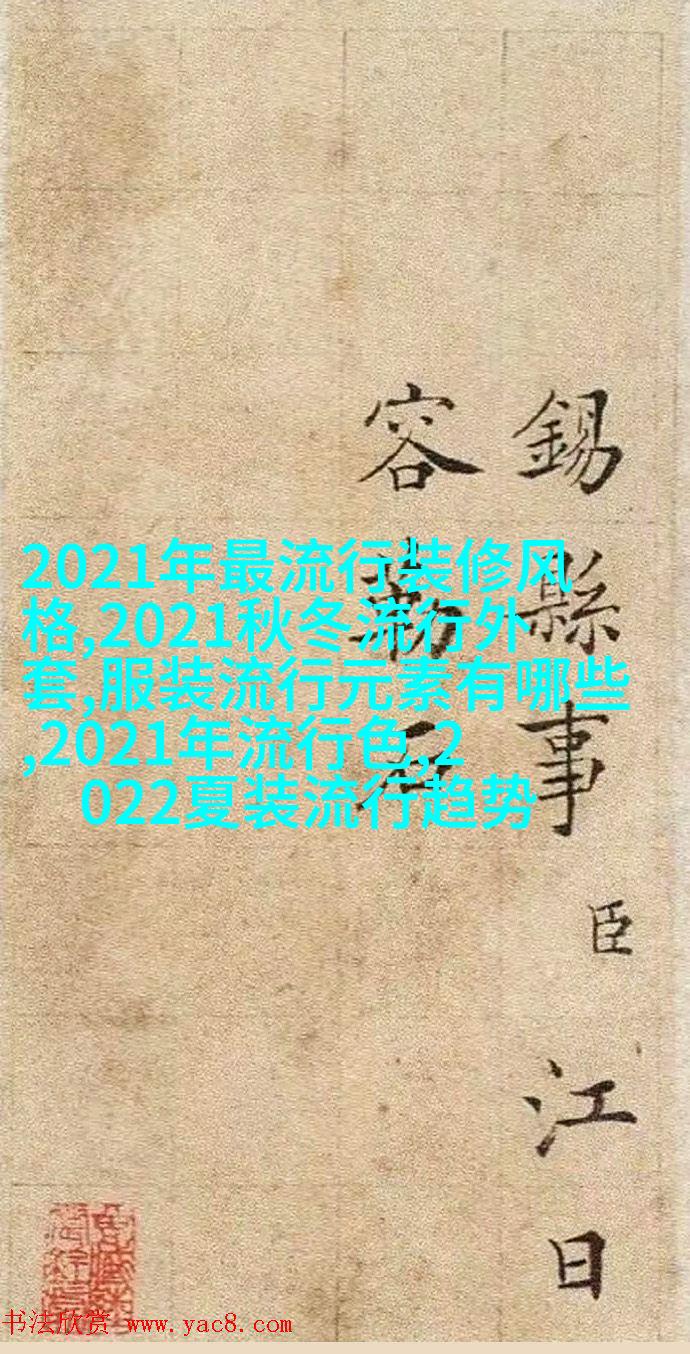 錫縣事臣江日
容勒石
2021年最流行装修风
格,2021秋冬流行外
套,服装流行元素有哪些
,2021年流行色,2
022夏装流行趋势
书法欣赏 www.yac8.com